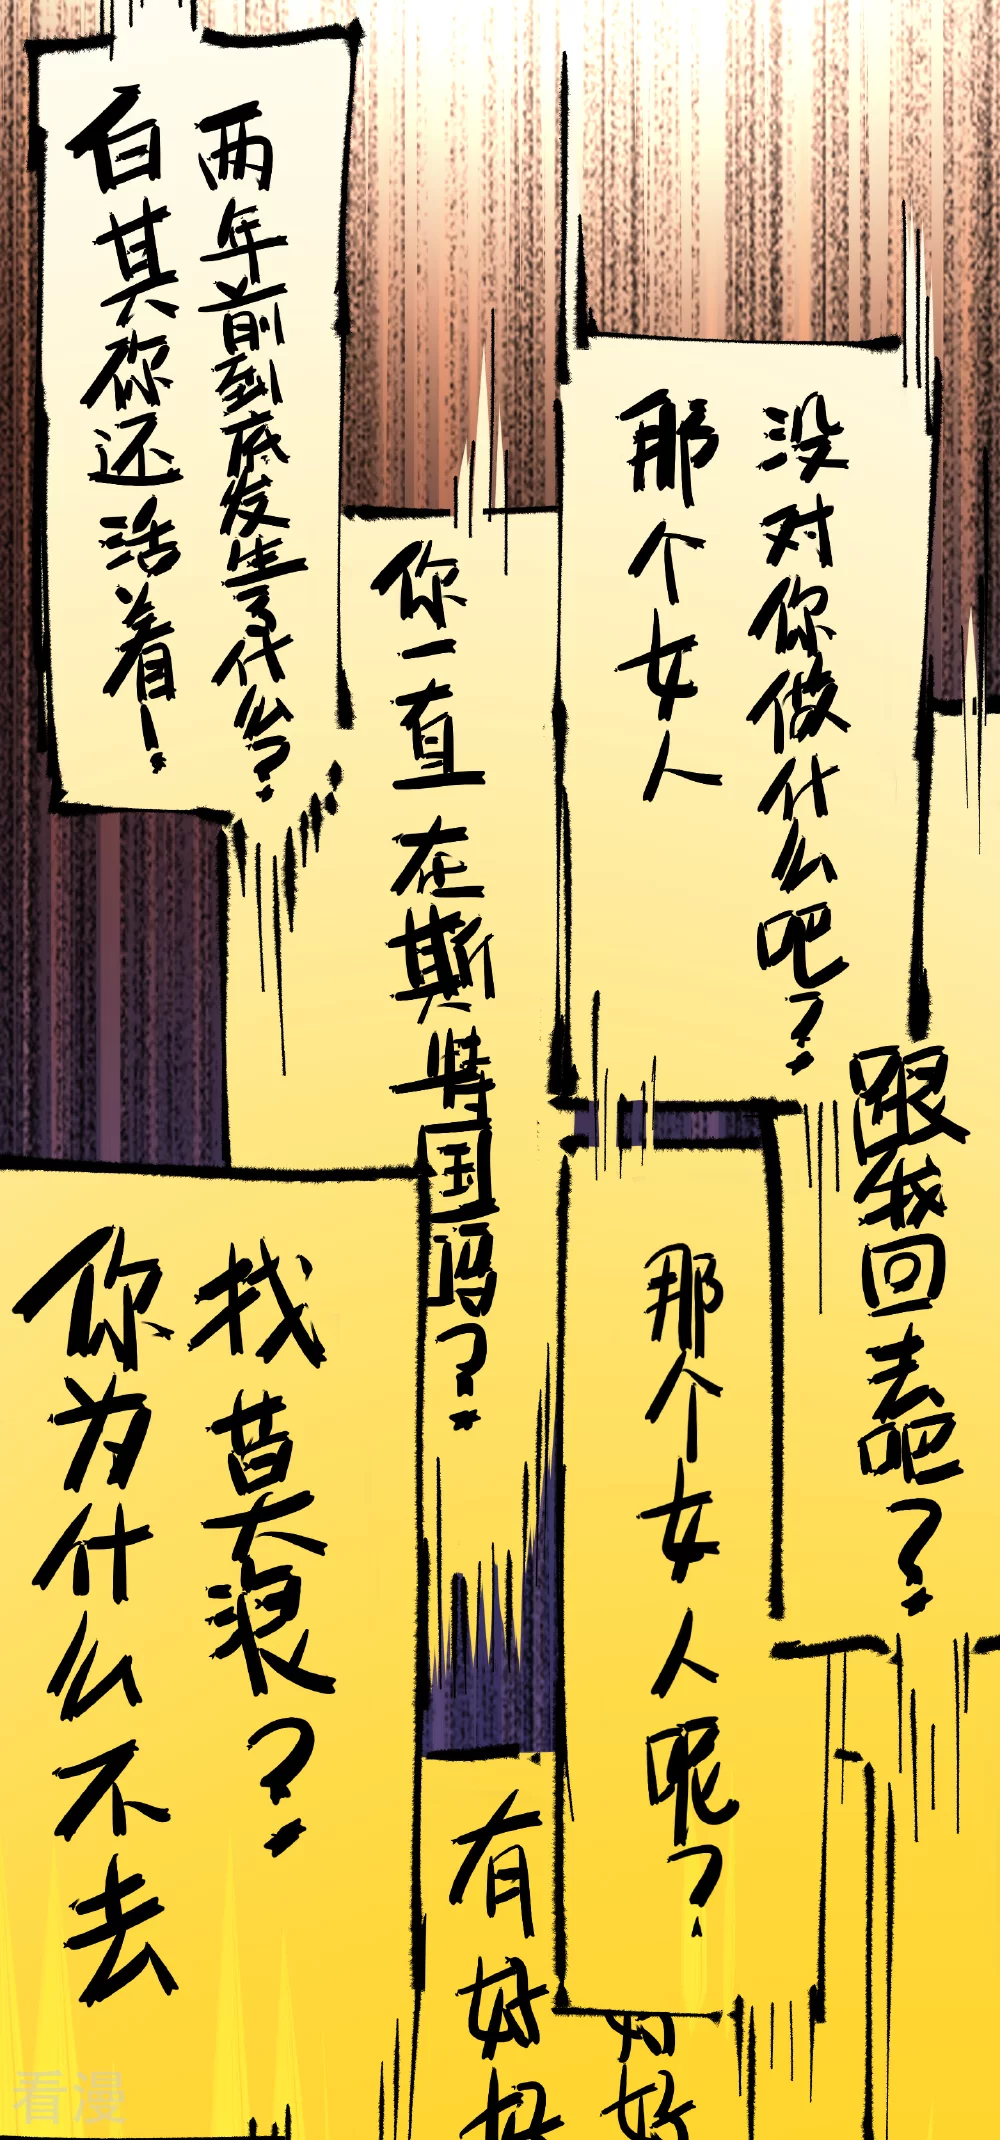 白其你还活着!
两年前到底发生了什么?
你一直在斯特国吗?
那个女人
没对你做什么吧?
跟我回去吧?
你为什么不去
找莫浪?
那个女人呢?
有好好
好
看漫